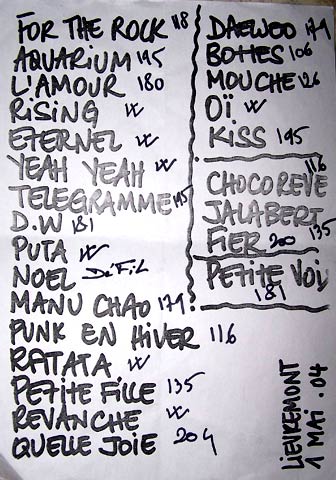 FOR THE ROCK 118
AQUARIUM 195
L'AMOUR 180
RISING
ETERNEL
YEAH YEAH
TELEGRAMME 195
D.W 181
PUTA
NOEL
MANU CHAO 179
PUNK EN HIVER 116
RATATA
PETITE FILLE 135
REVANCHE
QUELLE JOIE 204
DAEWOO 179
BOTTES 106
MOUCHE 126
OÏ
KISS 195
CHOCOREVE 116
JALABERT 135
FIER 200
PETITE VOIX
181
LIEVREMONT
1 MAI .04